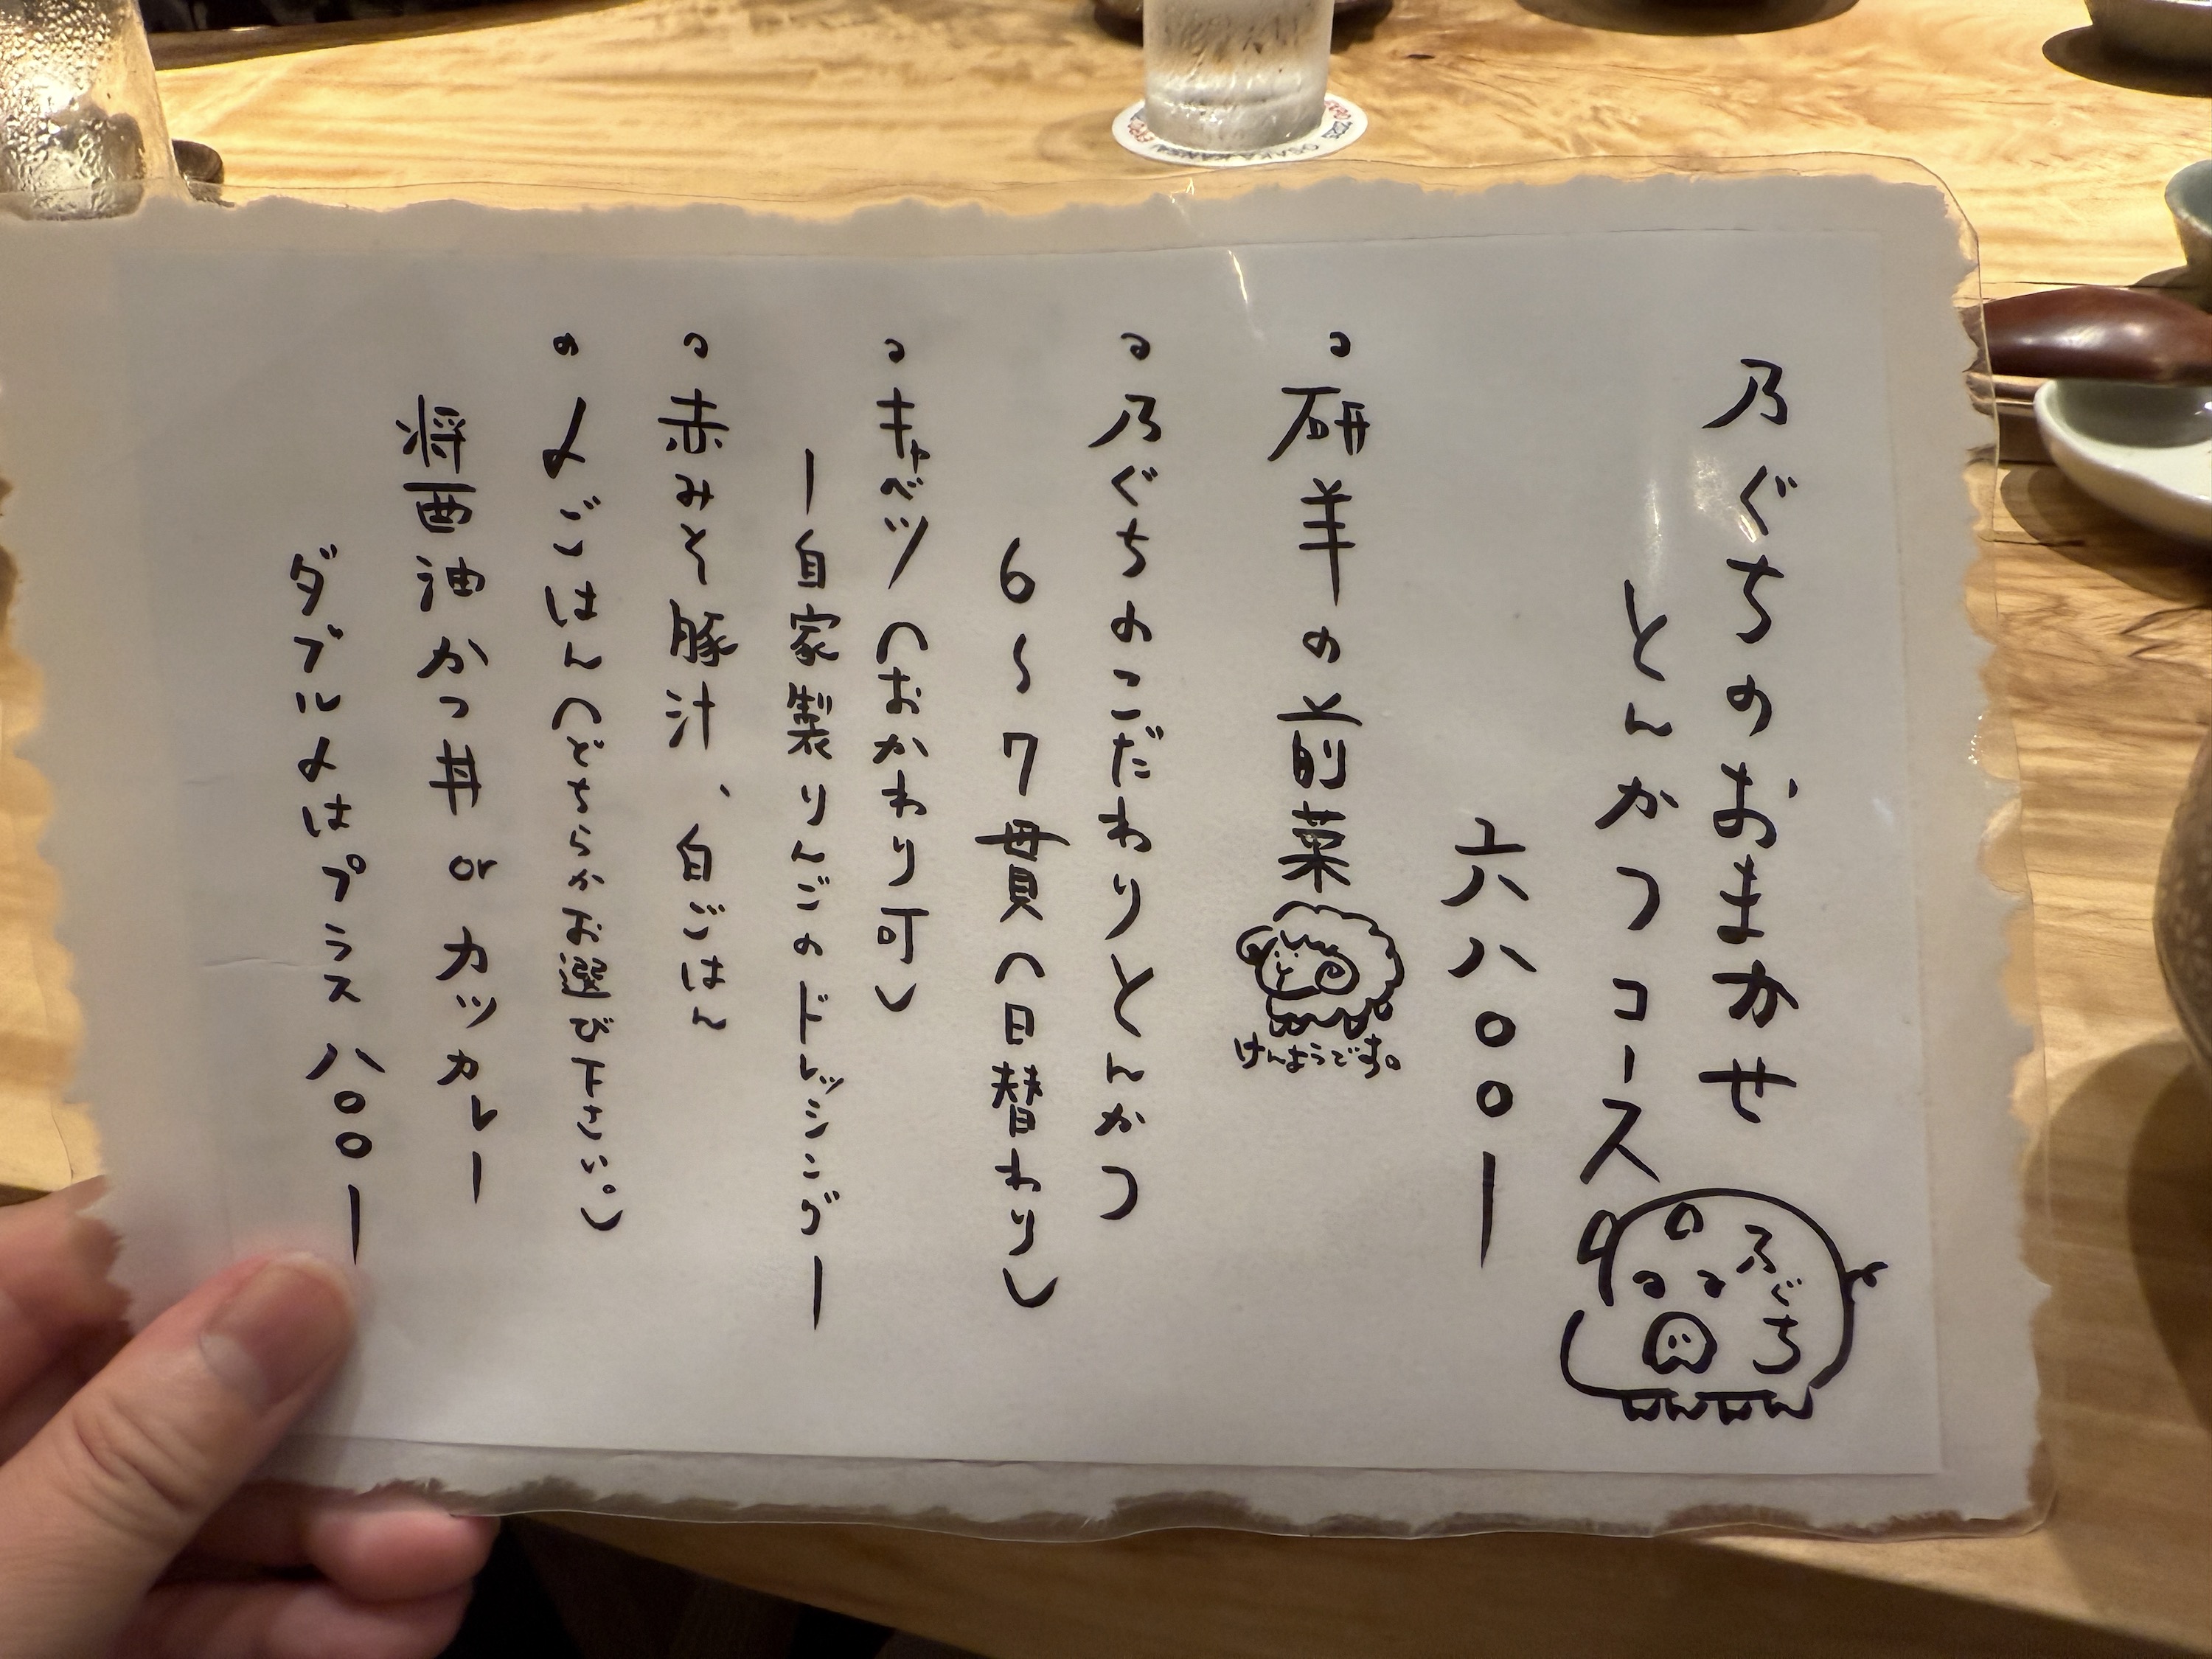 乃ぐちのおまかせ
とんかつコース
乃ぐち
六八〇〇ー
。研羊の前菜
けんようです。
。乃ぐちのこだわりとんかつ
6〜7貫(日替わり)
。キャベツ(おかわり可)
ー自家製りんごのドレッシングー
。赤みそ豚汁、白ごはん
。〆ごはん(どちらかお選び下さい。)
醤油かつ丼 or カツカレー
ダブル〆はプラス八〇〇ー
OSAKA KANSAI EXPO 2025